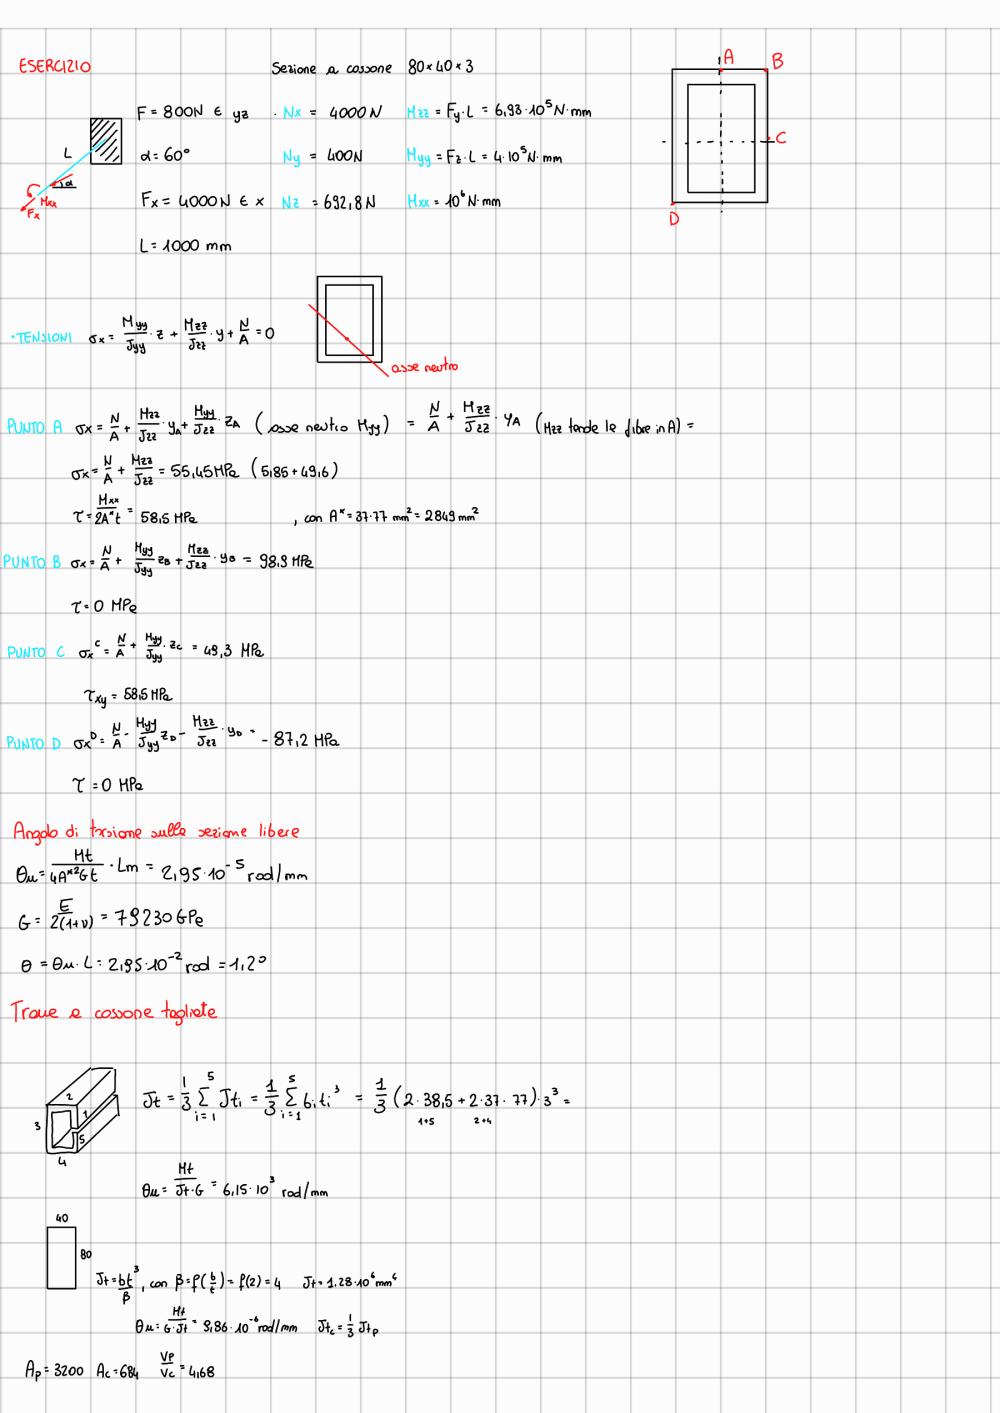 ESERCIZIO
Sezione a cassone 80×40×3
A
B
C
D
F = 800N ∈ yz
Nx = 4000N
Mzz = Fy·L = 6,93·10⁵N·mm
L
α
Mxx
Fx
α = 60°
Ny = 400N
Myy = Fz·L = 4·10⁵N·mm
Fx = 4000N ∈ x
Nz = 692,8N
Mxx = 10⁶N·mm
L = 1000 mm
·TENSIONI σx = Myy/Jyy·z + Mzz/Jzz·y + N/A = 0
asse neutro
PUNTO A σx = N/A + Mzz/Jzz·yA + Myy/Jzz·zA (asse neutro Myy) = N/A + Mzz/Jzz·yA (Mzz tende le fibre in A) =
σx = N/A + Mzz/Jzz = 55,45MPa (5,85+49,6)
τ = Mxx/2A*t = 58,5 MPa , con A* = 37·77 mm² = 2849mm²
PUNTO B σx = N/A + Myy/Jyy zB + Mzz/Jzz·yB = 98,9 MPa
τ = 0 MPa
PUNTO C σxᶜ = N/A + Myy/Jyy·zC = 49,3 MPa
τxy = 58,5MPa
PUNTO D σxᴰ = N/A - Myy/Jyy zD - Mzz/Jzz·yD = -87,2 MPa
τ = 0 MPa
Angolo di torsione sulla sezione libera
θu = Mt/4A*²Gt·Lm = 2,95·10⁻⁵ rad/mm
G = E/2(1+ν) = 79230GPa
θ = θu·L = 2,95·10⁻² rad = 1,2°
Trave a cassone tagliata
2
1
3
5
4
Jt = 1/3 Σ(i=1, 5) Jti = 1/3 Σ(i=1, 5) biti³ = 1/3 (2·38,5 + 2·37·77)·3³ =
1+5 2+4
θu = Mt/Jt·G = 6,15·10³ rad/mm
40
80
Jt = bt³/β, con β = f(b/t) = f(2) = 4 Jt = 1,28·10⁶mm⁴
θu = Mt/G·Jt = 9,86·10⁻⁶rad/mm Jtc = 1/3 Jtp
Ap = 3200 Ac = 684 Vp/Vc = 4,68